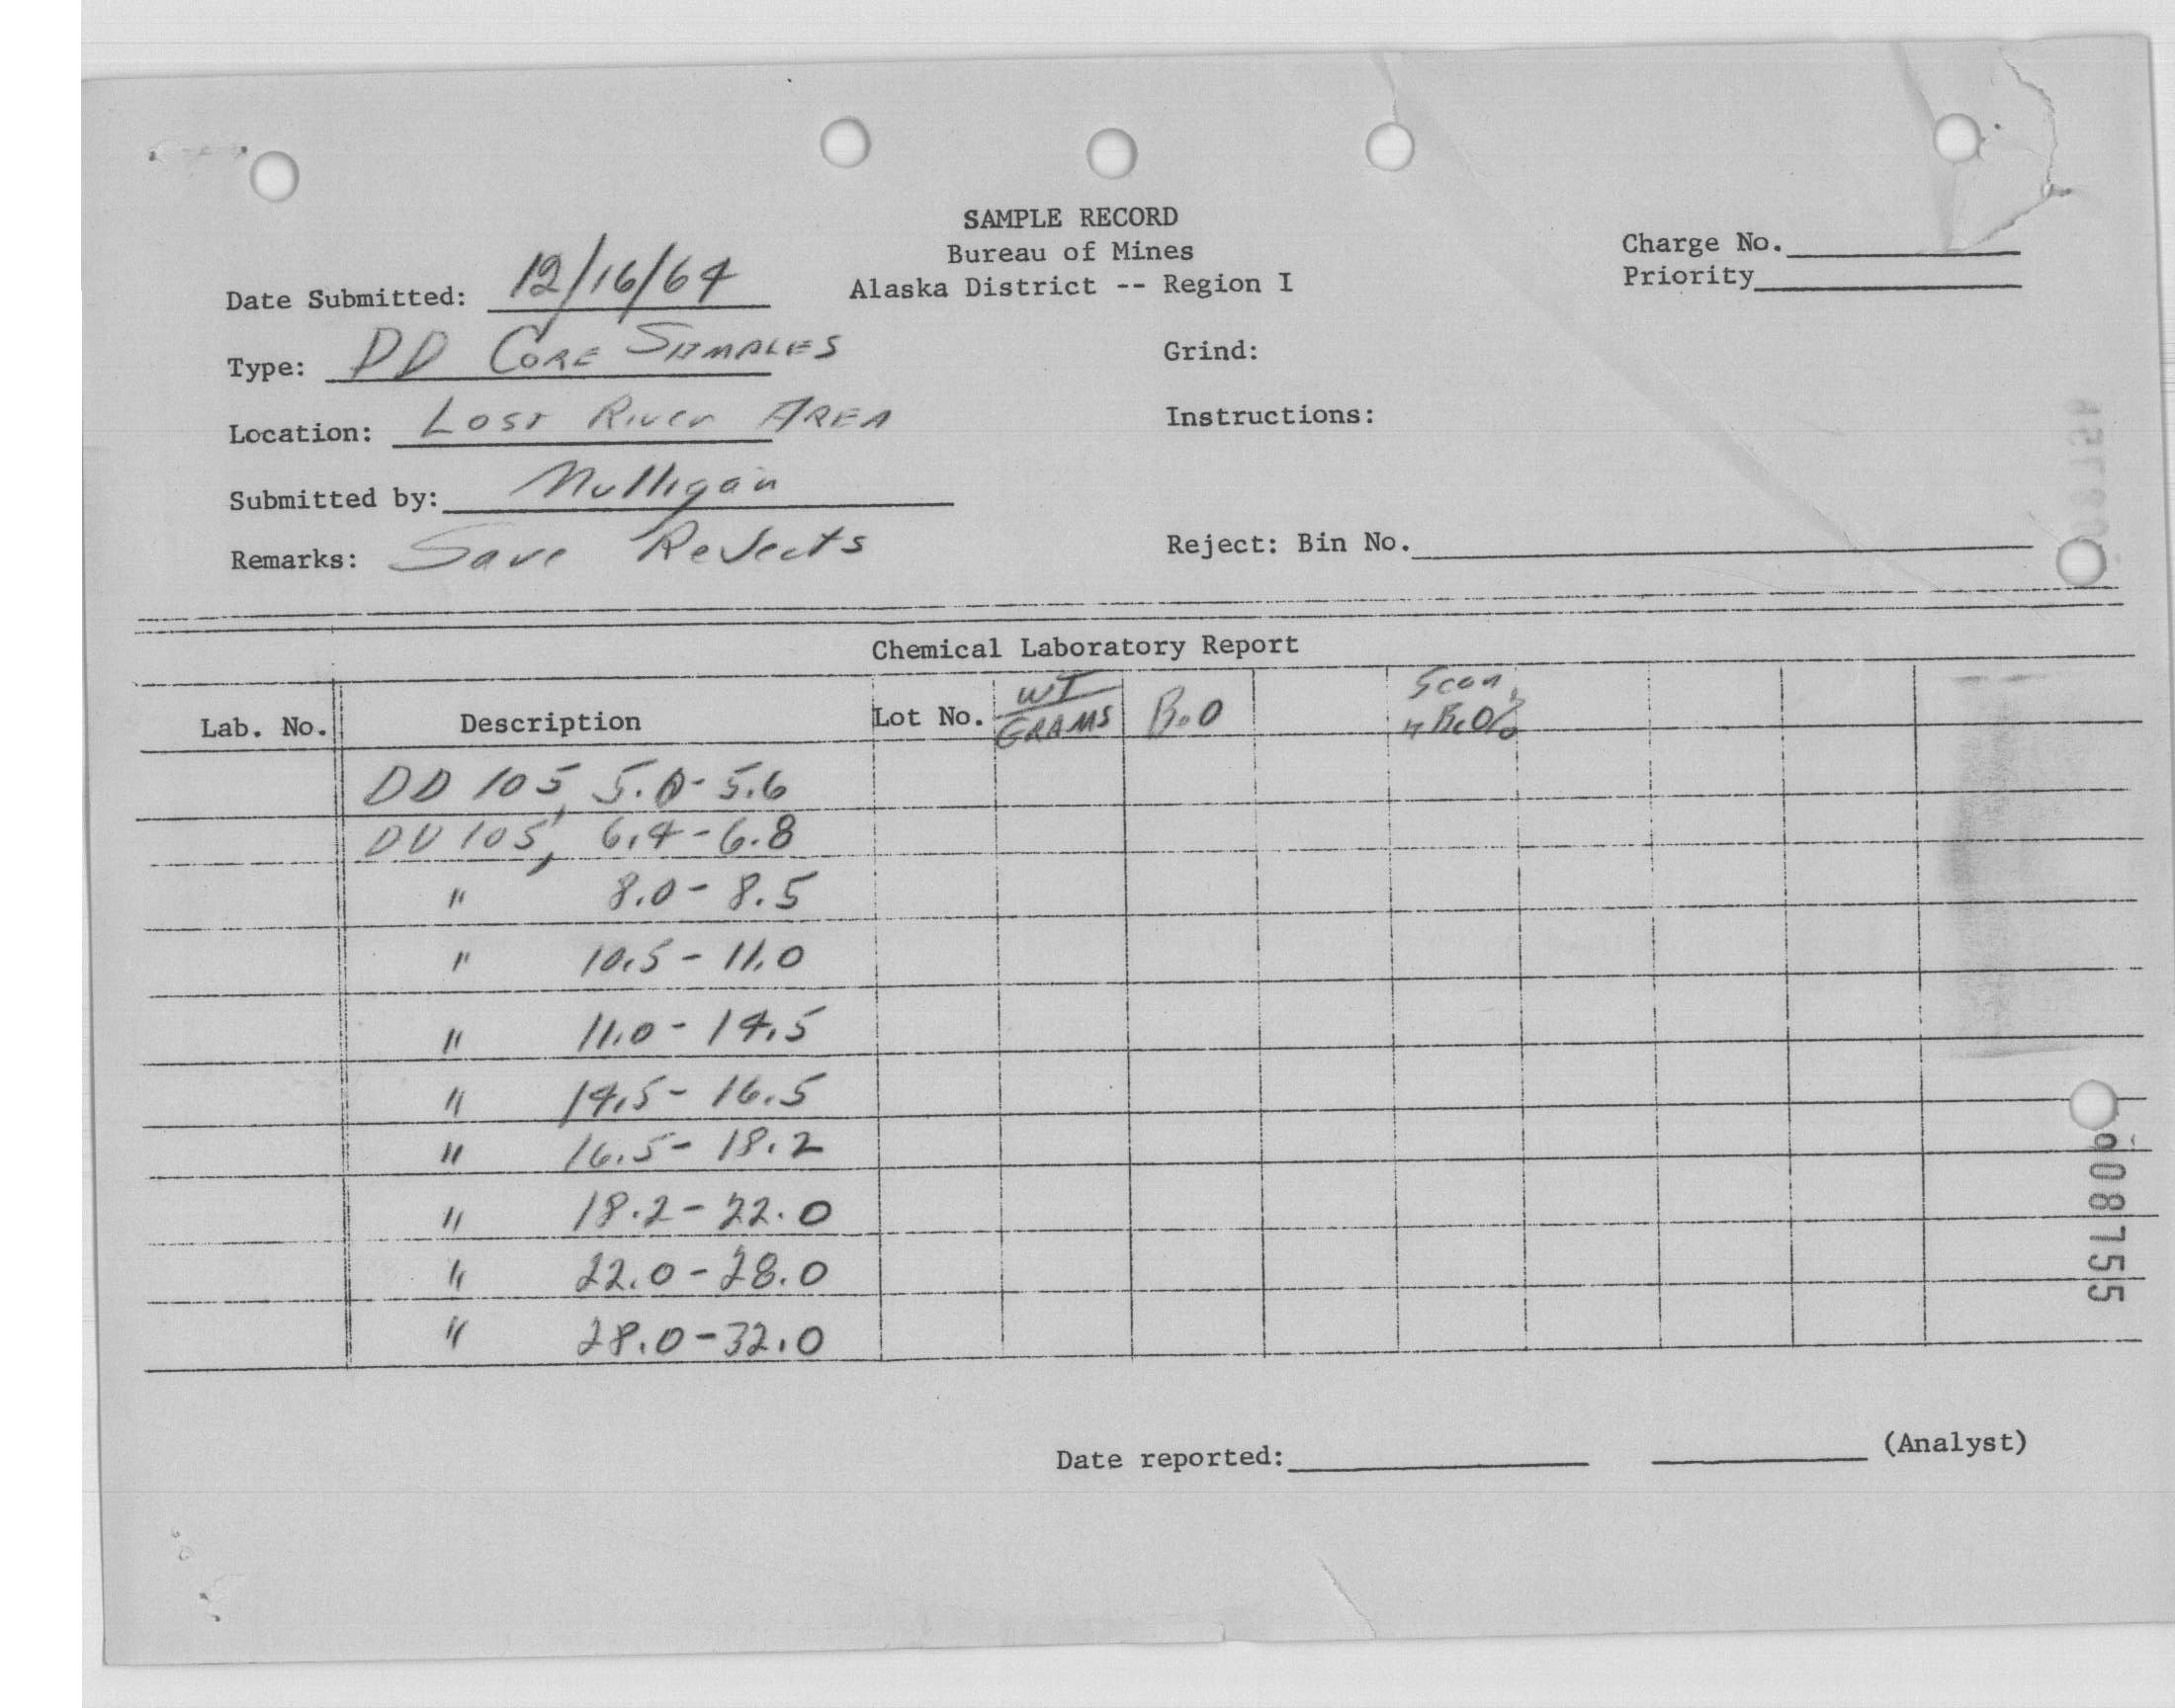 SAMPLE RECORD
Bureau of Mines
Alaska District -- Region I
Charge No.
Priority
Date Submitted: 12/16/64
Type: DD CORE SAMPLES
Grind:
Location: LOST RIVER AREA
Instructions:
Submitted by: Mulligan
Remarks: Save Rejects
Reject: Bin No.
Chemical Laboratory Report
Lab. No. Description Lot No. WT GRAMS BeO Scan BeO%
DD 105, 5.0-5.6
DD 105, 6.4-6.8
" 8.0-8.5
" 10.5-11.0
" 11.0-14.5
" 14.5-16.5
" 16.5-18.2
" 18.2-22.0
" 22.0-28.0
" 28.0-32.0
Date reported: (Analyst)
008755